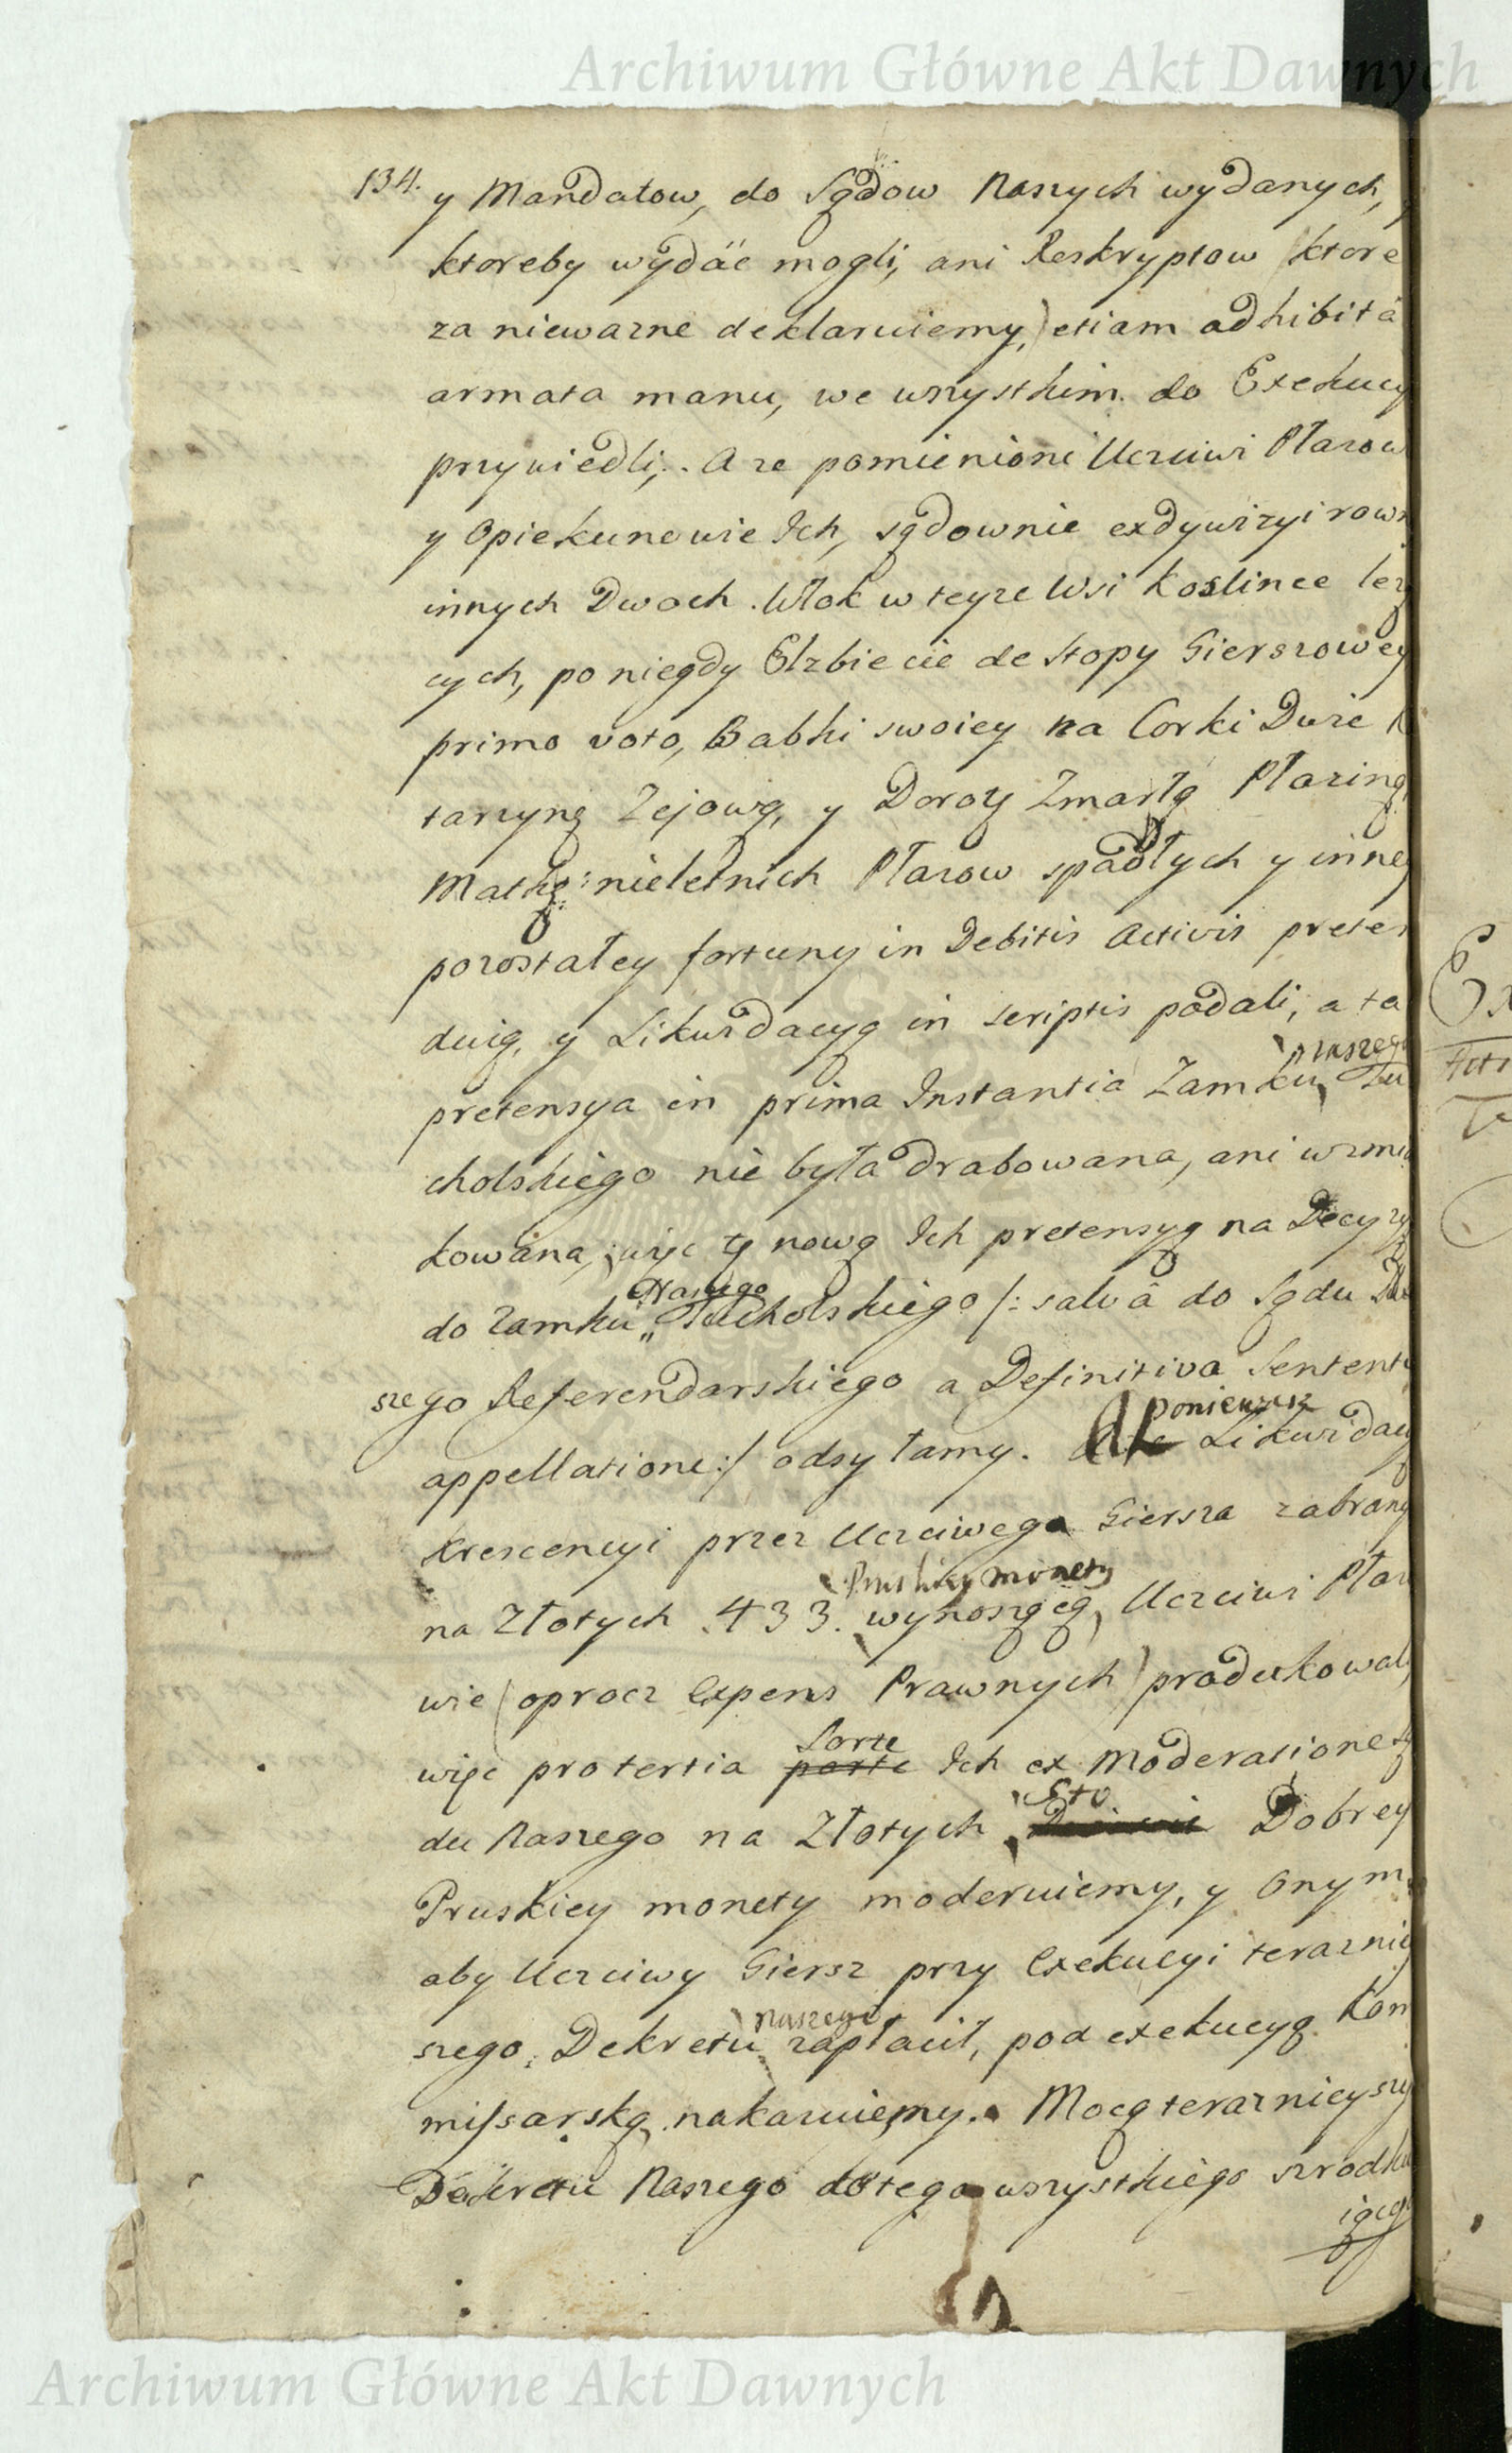 Archiwum Główne Akt Dawnych
134. y Mandatow, do Sądow Naszych wydanych,
ktoreby wydać mogli, ani Reskryptow (ktore
za niewazne deklaruiemy,) etiam adhibitâ
armata manu, we wszystkim do Exekucy
przywiedli;. A ze pomienioni Uczciwi Płazow
y Opiekunowie Ich, sądownie exdywizyi rown
innych Dwoch Włok w teyze Wsi Koslince lez
cych, po niegdy Elzbiecie de Stopy Gierszowey
primo voto, Babki swoiey na Corki Dwie K
tarzyną Zejową, y Doroty Zmarłą Płaziną,
Matkę: nieletnich Płazow spadłych y inney
pozostałey fortuny in Debitis Activis preten
duią, y Likwidacyą in scriptis podali, a ta
pretensya in prima Instantia Zamku naszego Tu
cholskiego nie była drabowana, ani wzmia
kowana, więc tę nową Ich pretensyą na Decyzy
do Zamku Naszego Tucholskiego /: salvâ do Sądu Na
szego Referendarskiego a Definitiva Sententi
appellatione:/ odsyłamy. A ponieważ Likwidacy
krescencyi przez Uczciwego Giersza zabraney
na Złotych 433. Pruskiey monety wynoszącą, Uczciwi Płaz
wie (oprocz Expens Prawnych) produkowali,
więc pro tertia parte Sorte Ich ex Moderatione Są
du Naszego na Złotych Sto Dobrey
Pruskiey monety moderuiemy, y Onym,
aby Uczciwy Giersz przy Exekucyi teraźniey
szego Dekretu naszego zapłacił, pod exekucyą Kom
missarską nakazuiemy. Mocą teraznieyszy
Dekretu Naszego do tego wszystkiego szrodku
iącą
Ex
Archiwum Główne Akt Dawnych